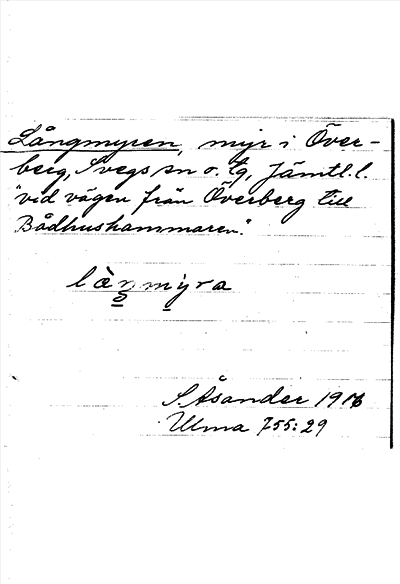 Långmyren, myr i Över-
berg, Svegs sn o. tg, Jämtl. l.
"vid vägen från Överberg till
Bådhushammaren".
làŋmyra
S. Åsander
Ulma 755:29